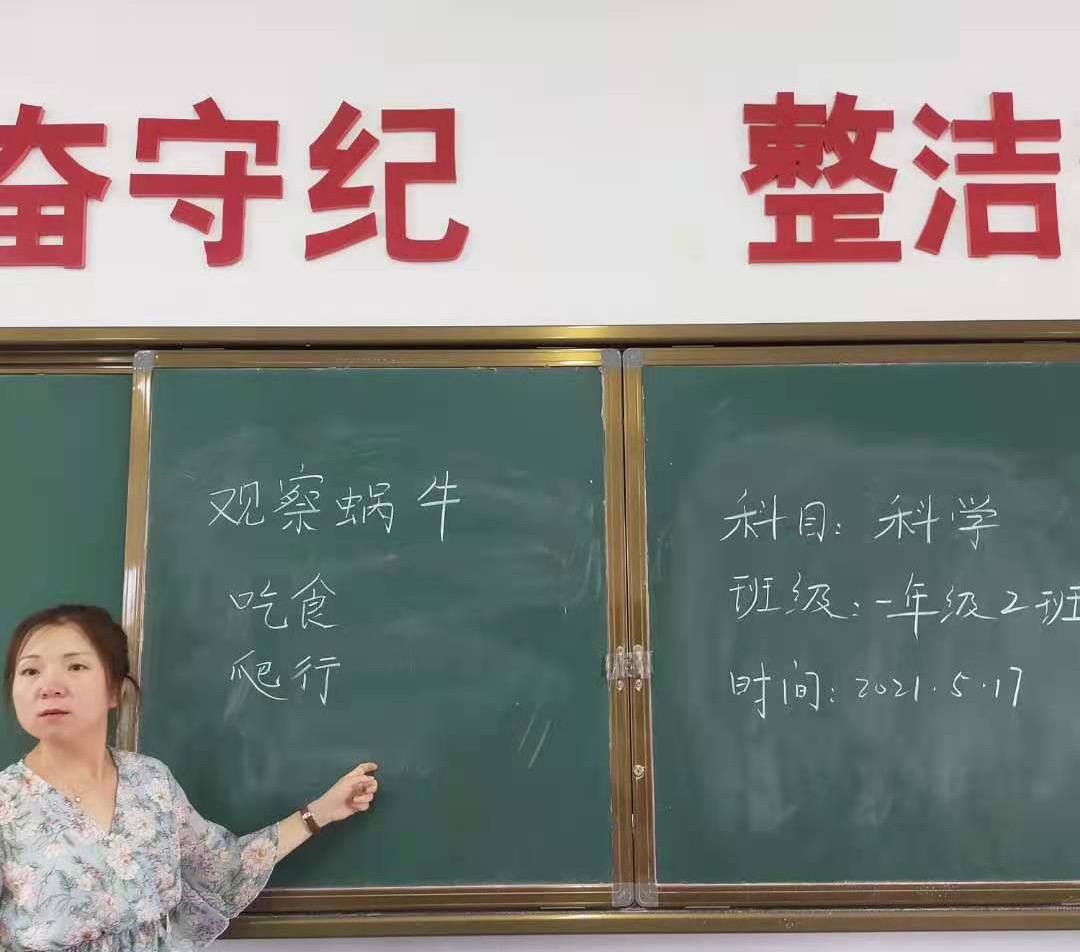 奋守纪 整洁
观察蜗牛
吃食
爬行
科目：科学
班级：一年级2班
时间：2021.5.17